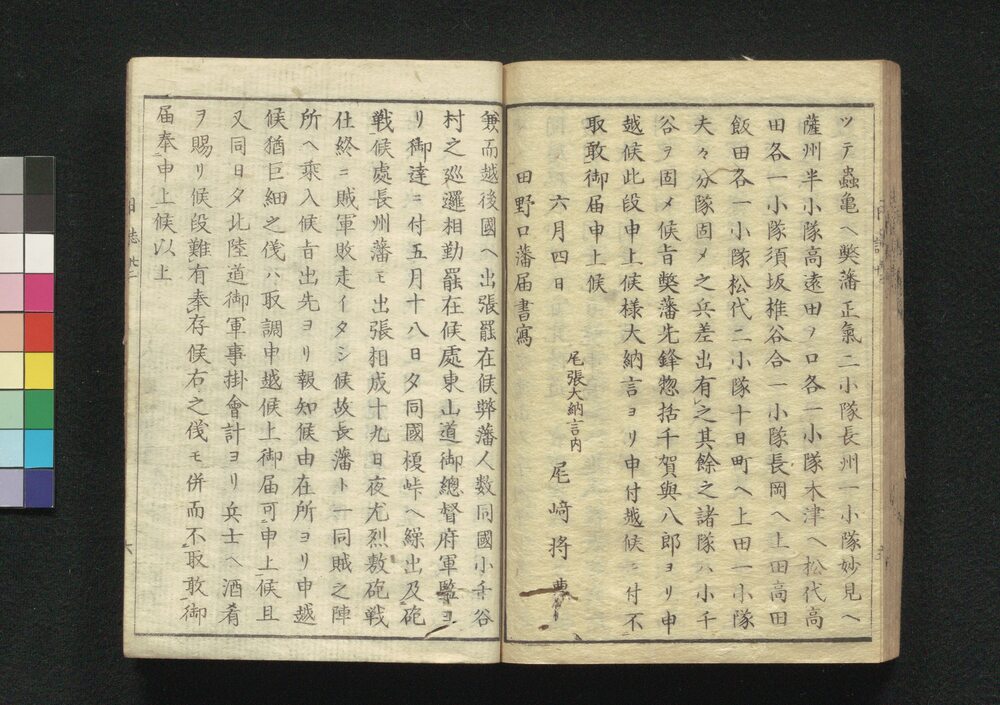 ツテ蟲亀ヘ獘藩正氣二小隊長州一小隊妙見ヘ
薩州半小隊高遠田ヲロ各一小隊木津ヘ松代高
田各一小隊須坂椎谷合一小隊長岡ヘ上田高田
飯田各一小隊松代二小隊十日町ヘ上田一小隊
夫々分隊固メ之兵差出有之其餘之諸隊ハ小千
谷ヲ固メ候旨獘藩先鋒惣括千賀與八郎ヨリ申
越候此段申上候様大納言ヨリ申付越候ニ付不
取敢御届申上候
六月四日
尾張大納言内
尾﨑将曹
田野口藩届書寫
兼而越後國ヘ出張罷在候弊藩人数同國小千谷
村之廵邏相勤罷在候處東山道御總督府軍監ヨ
リ御達ニ付五月十八日夕同國榎峠ヘ繰出及砲
戦候處長州藩モ出張相成十九日夜尤烈敷砲戦
仕終ニ賊軍敗走イタシ候故長藩ト一同賊之陣
所ヘ乗入候旨出先ヨリ報知候由在所ヨリ申越
候猶巨細之儀ハ取調申越候上御届可申上候且
又同日夕北陸道御軍事掛會計ヨリ兵士ヘ酒肴
ヲ賜リ候段難有奉存候右之儀モ併而不取敢御
届奉申上候以上